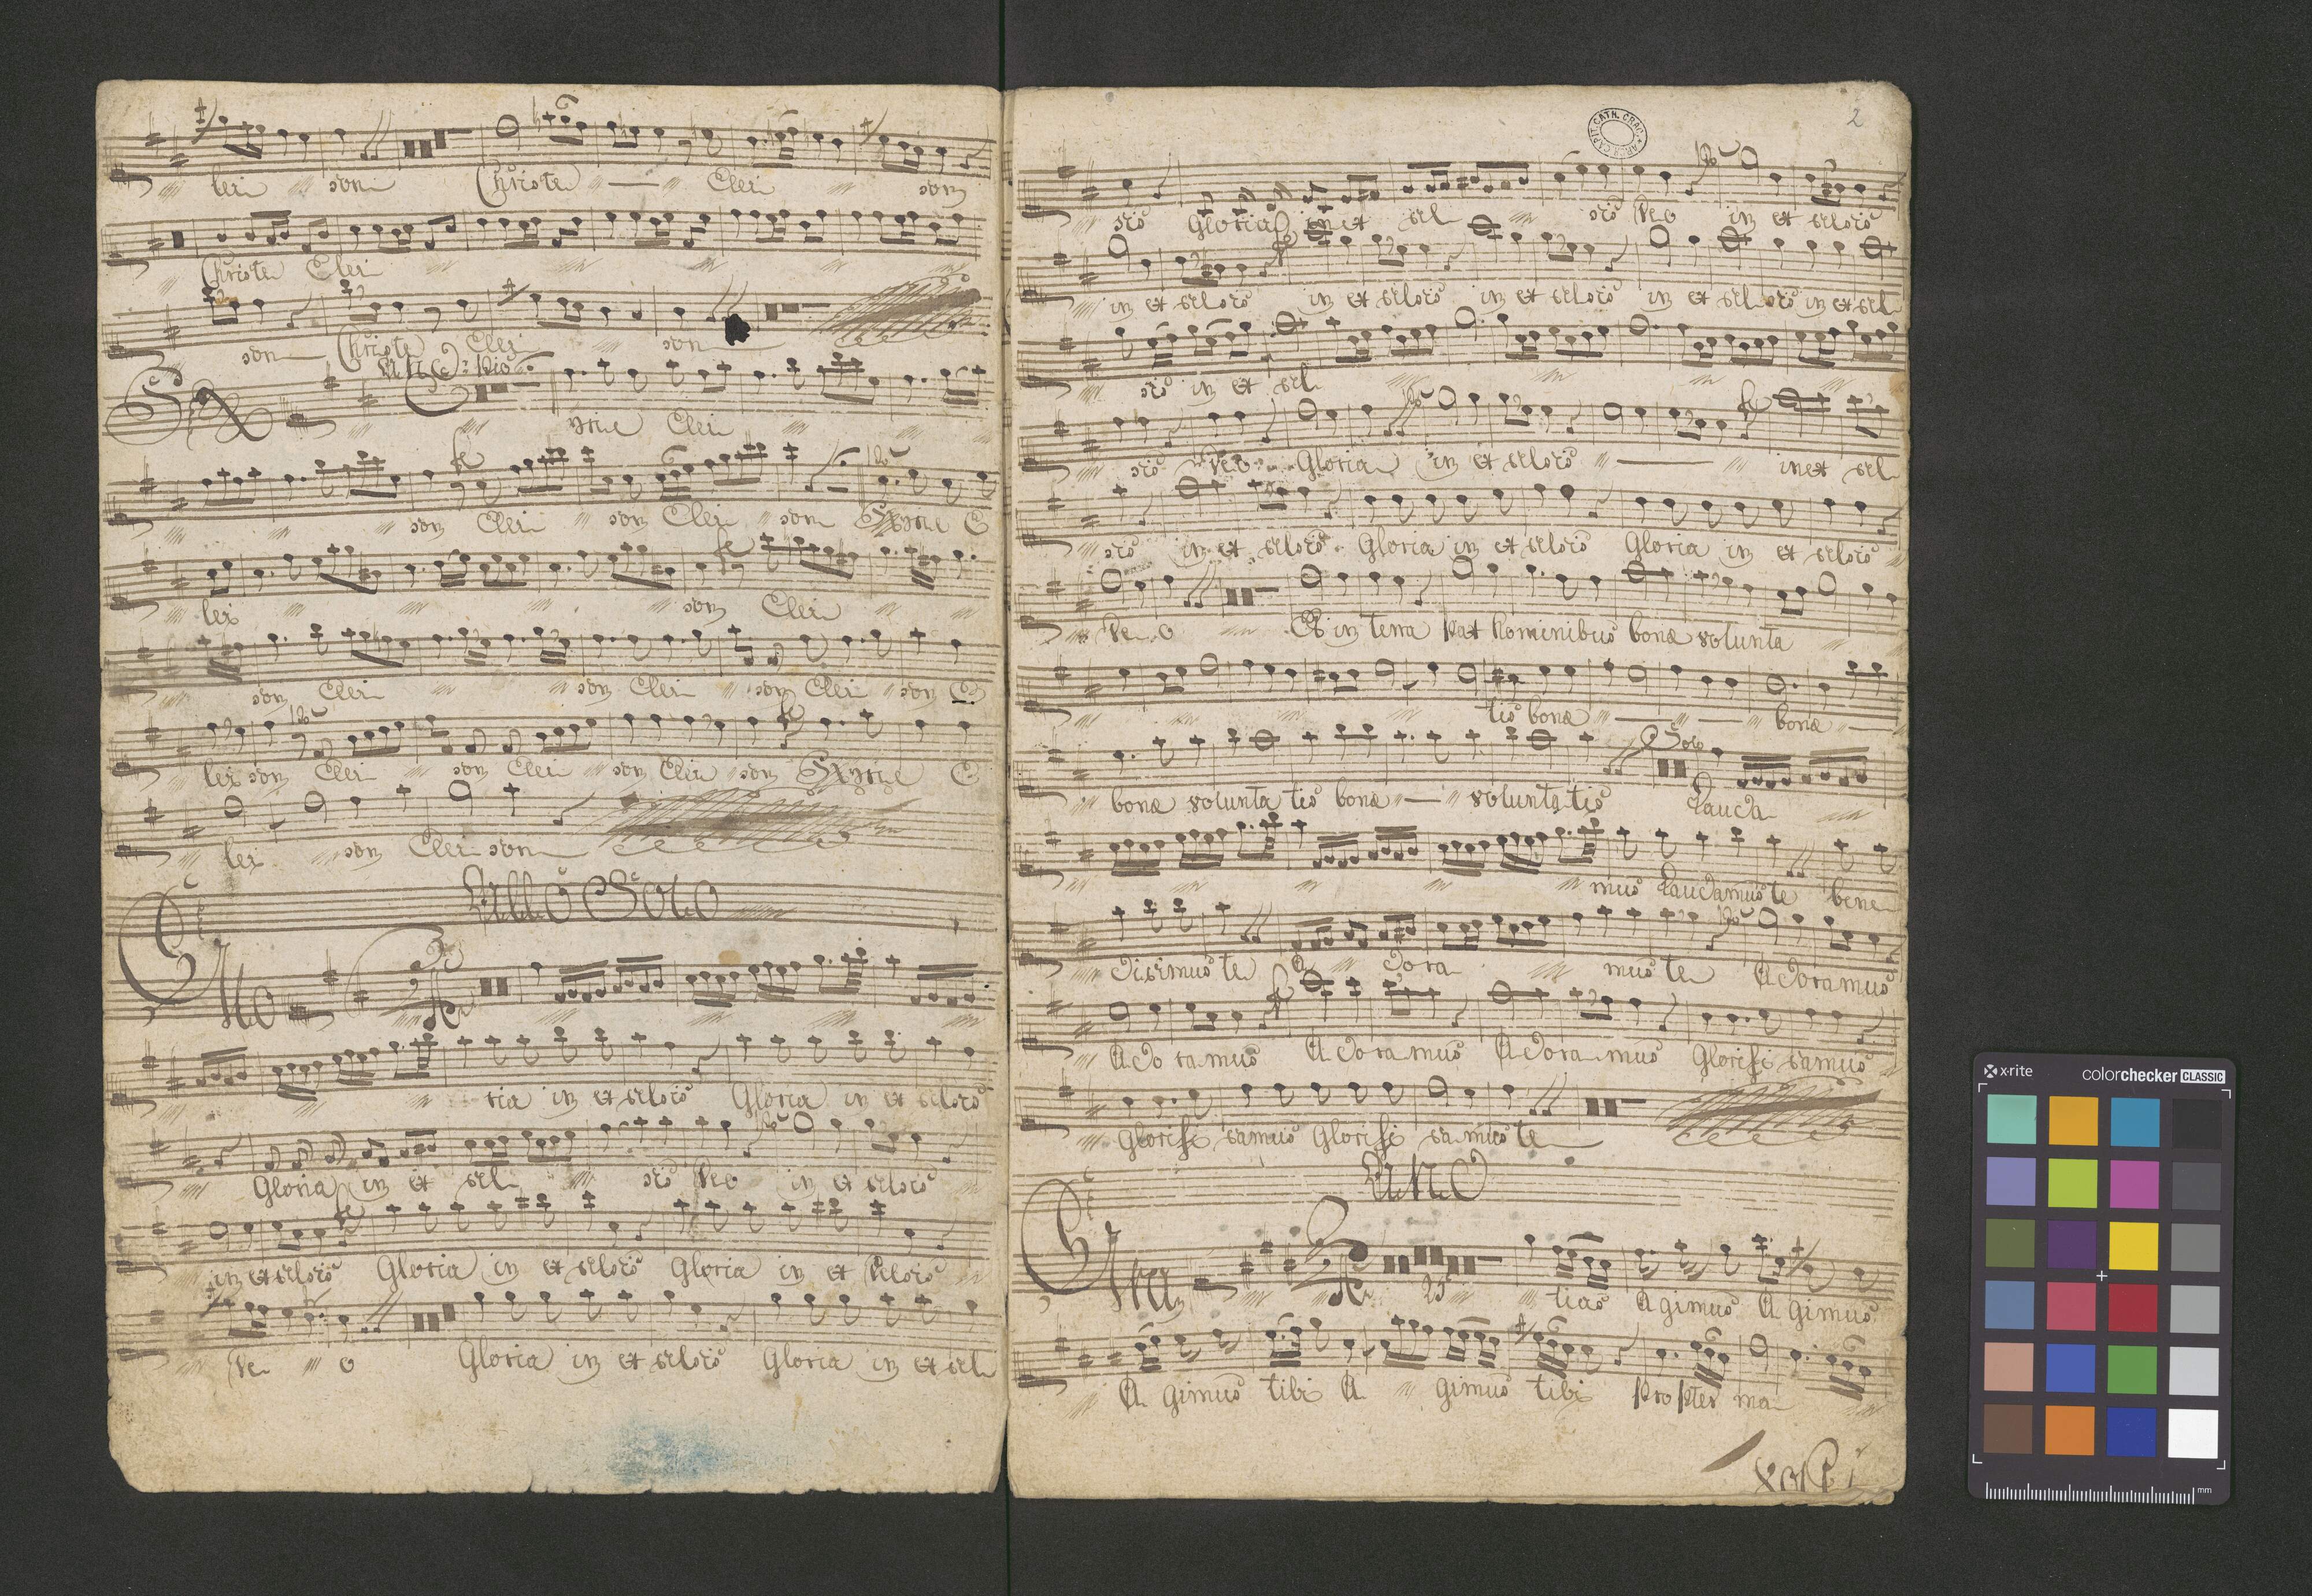 lei son Christe Elei son
Christe Elei
son Christe Elei son
yrie Elei
fe po
son Elei son Elei son Kyrie E
fe
lei son Elei
son Elei son Elei son Elei son E
po fe
lei son Elei son Elei son Elei son Kyrie E
lei son Elei son
Allo Solo
Glo
ria in excelsis Gloria in excelsis
po
Gloria in excel sis Deo in excelsis
fe
in excelsis Gloria in excelsis Gloria in excelsis
De o Gloria in excelsis Gloria in excel
ARCH. CAPIT. CATH. CRAC.
2
po
sis Gloria in excel sis Deo in excelsis
fe
in excelsis in excelsis in excelsis in excelsis in excel
sis in excel
po fe
sis Deo Gloria in excelsis in excel
sis in excelsis Gloria in excelsis Gloria in excelsis
De o Et in terra pax hominibus bonæ volunta
tis bonæ bonæ
Solo
bonæ volunta tis bonæ voluntatis Lauda
mus Laudamus te bene
po
dicimus te A dora mus te Adoramus
fe
Adoramus Adoramus Adoramus Glorifi camus
Glorifi camus Glorifi camus te
And
Gra
25
tias Agimus Agimus
A gimus tibi A gimus tibi propter ma
x-rite colorchecker CLASSIC
mm